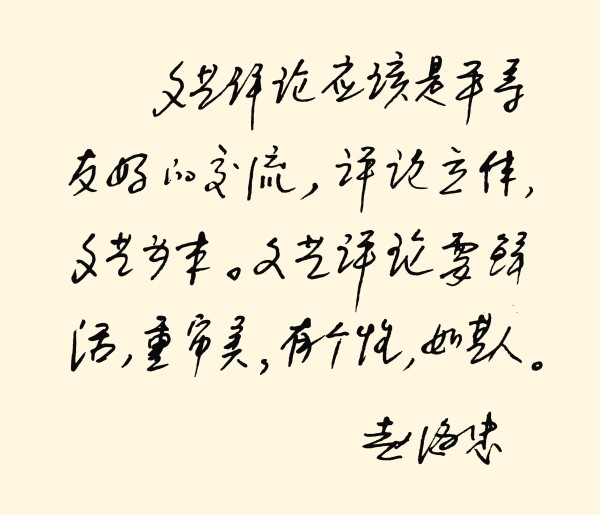 文艺评论应该是平等
友好的交流，评论立体，
文艺为本。文艺评论要鲜
活，重审美，有个性，如其人。
赵 忠